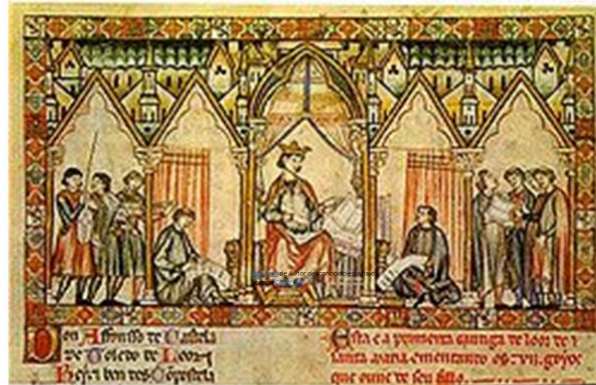 Don Affonsso de Castela
de Toledo de Leon
Rey e ben des Conpostela
Esta e a primeira cantiga de loor de
santa maria ementando os VII goyos
que ouue de seu fillo
de Autor desconocido